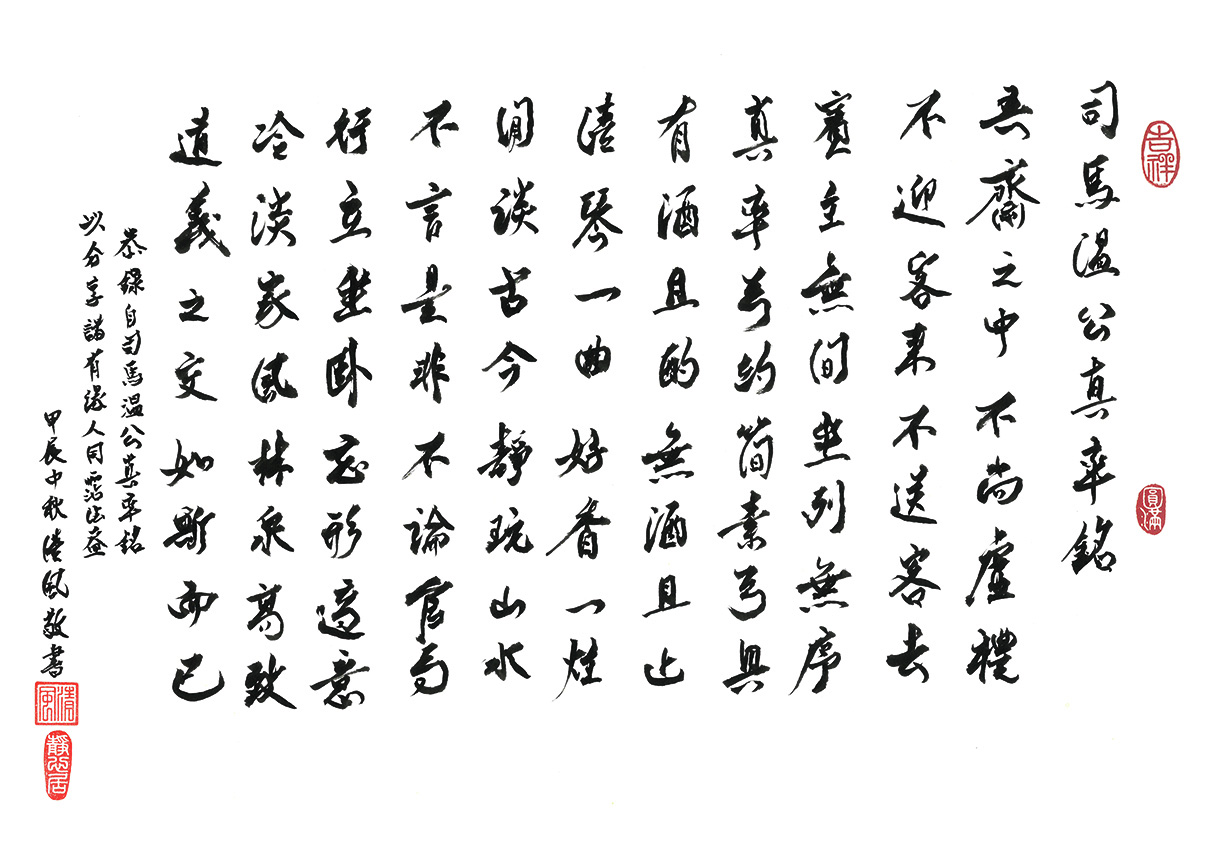 吉祥
圓滿
司馬溫公真率銘
吾齋之中不尚虛禮
不迎客來不送客去
賓主無間坐列無序
真率為約簡素為具
有酒且酌無酒且止
清琴一曲好香一炷
閒談古今靜玩山水
不言是非不論官局
行立坐臥忘形適意
冷淡家風林泉高致
道義之交如斯而已
恭錄自司馬溫公真率銘
以分享諸有緣人同霑法益
甲辰中秋清風敬書
清風
靜心居